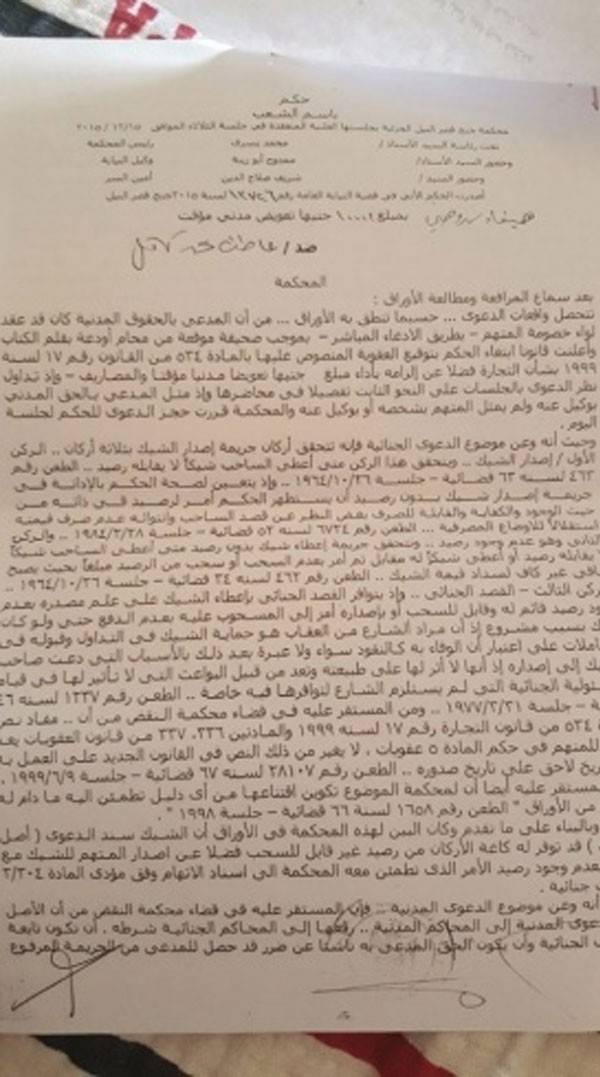 حكم
باسم الشعب
محكمة جنح قصر النيل الجزئية بجلستها العلنية المنعقدة في جلسة الثلاثاء الموافق ٢٠١٥/١٢/١٥
تحت رئاسة السيد الأستاذ / محمد نصرى رئيس المحكمة
وحضور السيد الأستاذ/ ممدوح أبو زينة وكيل النيابة
وحضور السيد / شريف صلاح الدين أمين السر
أصدرت الحكم الآتي في قضية النيابة العامة رقم لسنة ٢٠١٥ جنح قصر النيل
بمبلغ جنيها تعويض مدني مؤقت
ضد /
المحكمة
بعد سماع المرافعة ومطالعة الأوراق :
تتحصل واقعات الدعوى ... حسبما تنطق به الأوراق ... من أن المدعى بالحقوق المدنية كان قد عقد
لواء خصومة المتهم – بطريق الادعاء المباشر – بموجب صحيفة موقعة من محام أودعت بقلم الكتاب
وأعلنت قانونا ابتغاء الحكم بتوقيع العقوبة المنصوص عليها بالمادة ٥٣٤ من القانون رقم ١٧ لسنة
١٩٩٩ بشأن التجارة فضلا عن إلزامه بأداء مبلغ جنيها تعويضا مدنيا مؤقتا والمصاريف – وإذ تداول
نظر الدعوى بالجلسات على النحو الثابت تفصيلا في محاضرها وإذ مثل المدعى بالحق المدني
بوكيل عنه ولم يمثل المتهم بشخصه أو بوكيل عنه والمحكمة قررت حجز الدعوى للحكم لجلسة
اليوم .
وحيث أنه وعن موضوع الدعوى الجنائية فإنه تتحقق أركان جريمة إصدار الشيك بثلاثة أركان .. الركن
الأول / إصدار الشيك .. ويتحقق هذا الركن متى أعطى الساحب شيكاً لا يقابله رصيد .. الطعن رقم
٤٦٣ لسنه ٦٣ قضائية – جلسة ١٩٦٤/١٠/٢٦ .. وإذ يتعين لصحة الحكم بالإدانة في
جريمة إصدار شيك بدون رصيد أن يستظهر الحكم أمر لرصيد في ذاته من
حيث الوجود والكفاية والقابلية للصرف بغض النظر عن قصد الساحب وانتوائه عدم صرف قيمته
استقلالاً للأوضاع المصرفية ... الطعن رقم ٦٧٣٤ لسنه ٥٢ قضائية – جلسة ١٩٨٤/٣/٢٨ .. والركن
الثاني وهو عدم وجود رصيد .. وتتحقق جريمة إعطاء شيك بدون رصيد متى أعطى الساحب شيكاً
لا يقابله رصيد أو أعطى شيكاً له مقابل ثم أمر بعدم السحب أو سحب من الرصيد مبلغاً بحيث يصبح
باقي غير كاف لسداد قيمة الشيك .. الطعن رقم ٤٦٢ لسنه ٣٤ قضائية – جلسة ١٩٦٤/١٠/٢٦ ..
ركن الثالث – القصد الجنائى .. وإذ يتوافر القصد الجنائى بإعطاء الشيك على علم مصدره بعدم
ود رصيد قائم له وقابل للسحب أو بإصداره أمر إلى المسحوب عليه بعدم الدفع حتى ولو كان
ك بسبب مشروع إذ أن مراد الشارع من العقاب هو حماية الشيك في التداول وقبوله في
املات على اعتبار أن الوفاء به كالنقود سواء ولا عبرة بعد ذلك بالأسباب التي دعت صاحب
يك إلى إصداره إذ أنها لا أثر لها على طبيعته وتعد من قبيل البواعث التي لا تأثير لها في قيام
ئولية الجنائية التي لم يستلزم الشارع لتوافرها فيه خاصة .. الطعن رقم ١٣٣٧ لسنه ٤٦
ة – جلسة ١٩٧٧/٣/٢١ .. ومن المستقر عليه في قضاء محكمة النقض من أن .. مفاد نص
ة ٥٣٤ من قانون التجارة رقم ١٧ لسنه ١٩٩٩ والمادتين ٣٣٦، ٣٣٧ من قانون العقوبات يعد
للمتهم في حكم المادة ٥ عقوبات ، لا يغير من ذلك النص في القانون الجديد على العمل به
ريخ لاحق على تاريخ صدوره .. الطعن رقم ٢٨١٠٧ لسنه ٦٧ قضائية – جلسة ١٩٩٩/٦/٩ ،
مستقر عليه أيضا أن لمحكمة الموضوع تكوين اقتناعها من أى دليل تطمئن اليه ما دام له
من الأوراق " الطعن رقم ١٦٥٨ لسنة ٦٦ قضائية – جلسة ١٩٩٨ " .
وبالبناء على ما تقدم وكان البين لهذه المحكمة في الأوراق أن الشيك سند الدعوى ( أصل
) قد توفر له كافة الأركان من رصيد غير قابل للسحب فضلا عن اصدار المتهم للشيك مع
بعدم وجود رصيد الأمر الذى تطمئن معه المحكمة الى اسناد الاتهام وفق مؤدى المادة ٢/٣٠٤
ت جنائية .
أنه وعن موضوع الدعوى المدنية .. فإن المستقر عليه في قضاء محكمة النقض من أن الأصل
دعوى المدنية إلى المحاكم المدنية .. رفعها إلى المحاكم الجنائية شرطه ، أن تكون تابعة
ى الجنائية وأن يكون الحق المدعى به ناشئا عن ضرر قد حصل للمدعى من الجريمة المرفوع